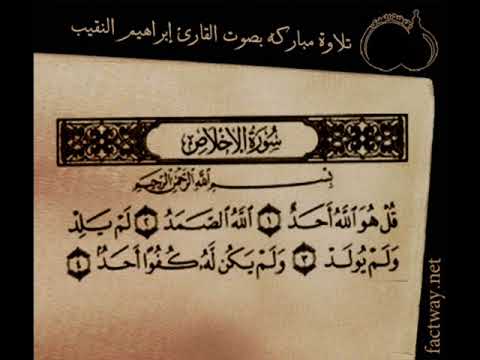 تلاوة مباركه بصوت القارئ إبراهيم النقيب
سُورَةُ الإِخْلَاصِ
بِسْمِ اللَّهِ الرَّحْمَٰنِ الرَّحِيمِ
قُلْ هُوَ ٱللَّهُ أَحَدٌ ١ ٱللَّهُ ٱلصَّمَدُ ٢ لَمْ يَلِدْ
وَلَمْ يُولَدْ ٣ وَلَمْ يَكُن لَّهُۥ كُفُوًا أَحَدٌۢ ٤
factway.net